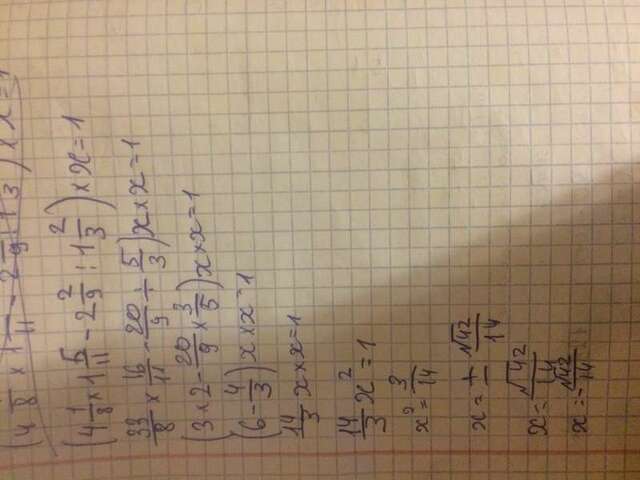 (4 1/8 × 1 5/11 − 2 2/9 : 1 2/3) × x = 1
33/8 × 16/11 − 20/9 ÷ 5/3) x × x = 1
(3 × 2 − 20/9 × 3/5) x × x = 1
(6 − 4/3) x × x = 1
14/3 x × x = 1
14/3 x² = 1
x² = 3/14
x = ± √42/14
x = √42/14
x = −√42/14